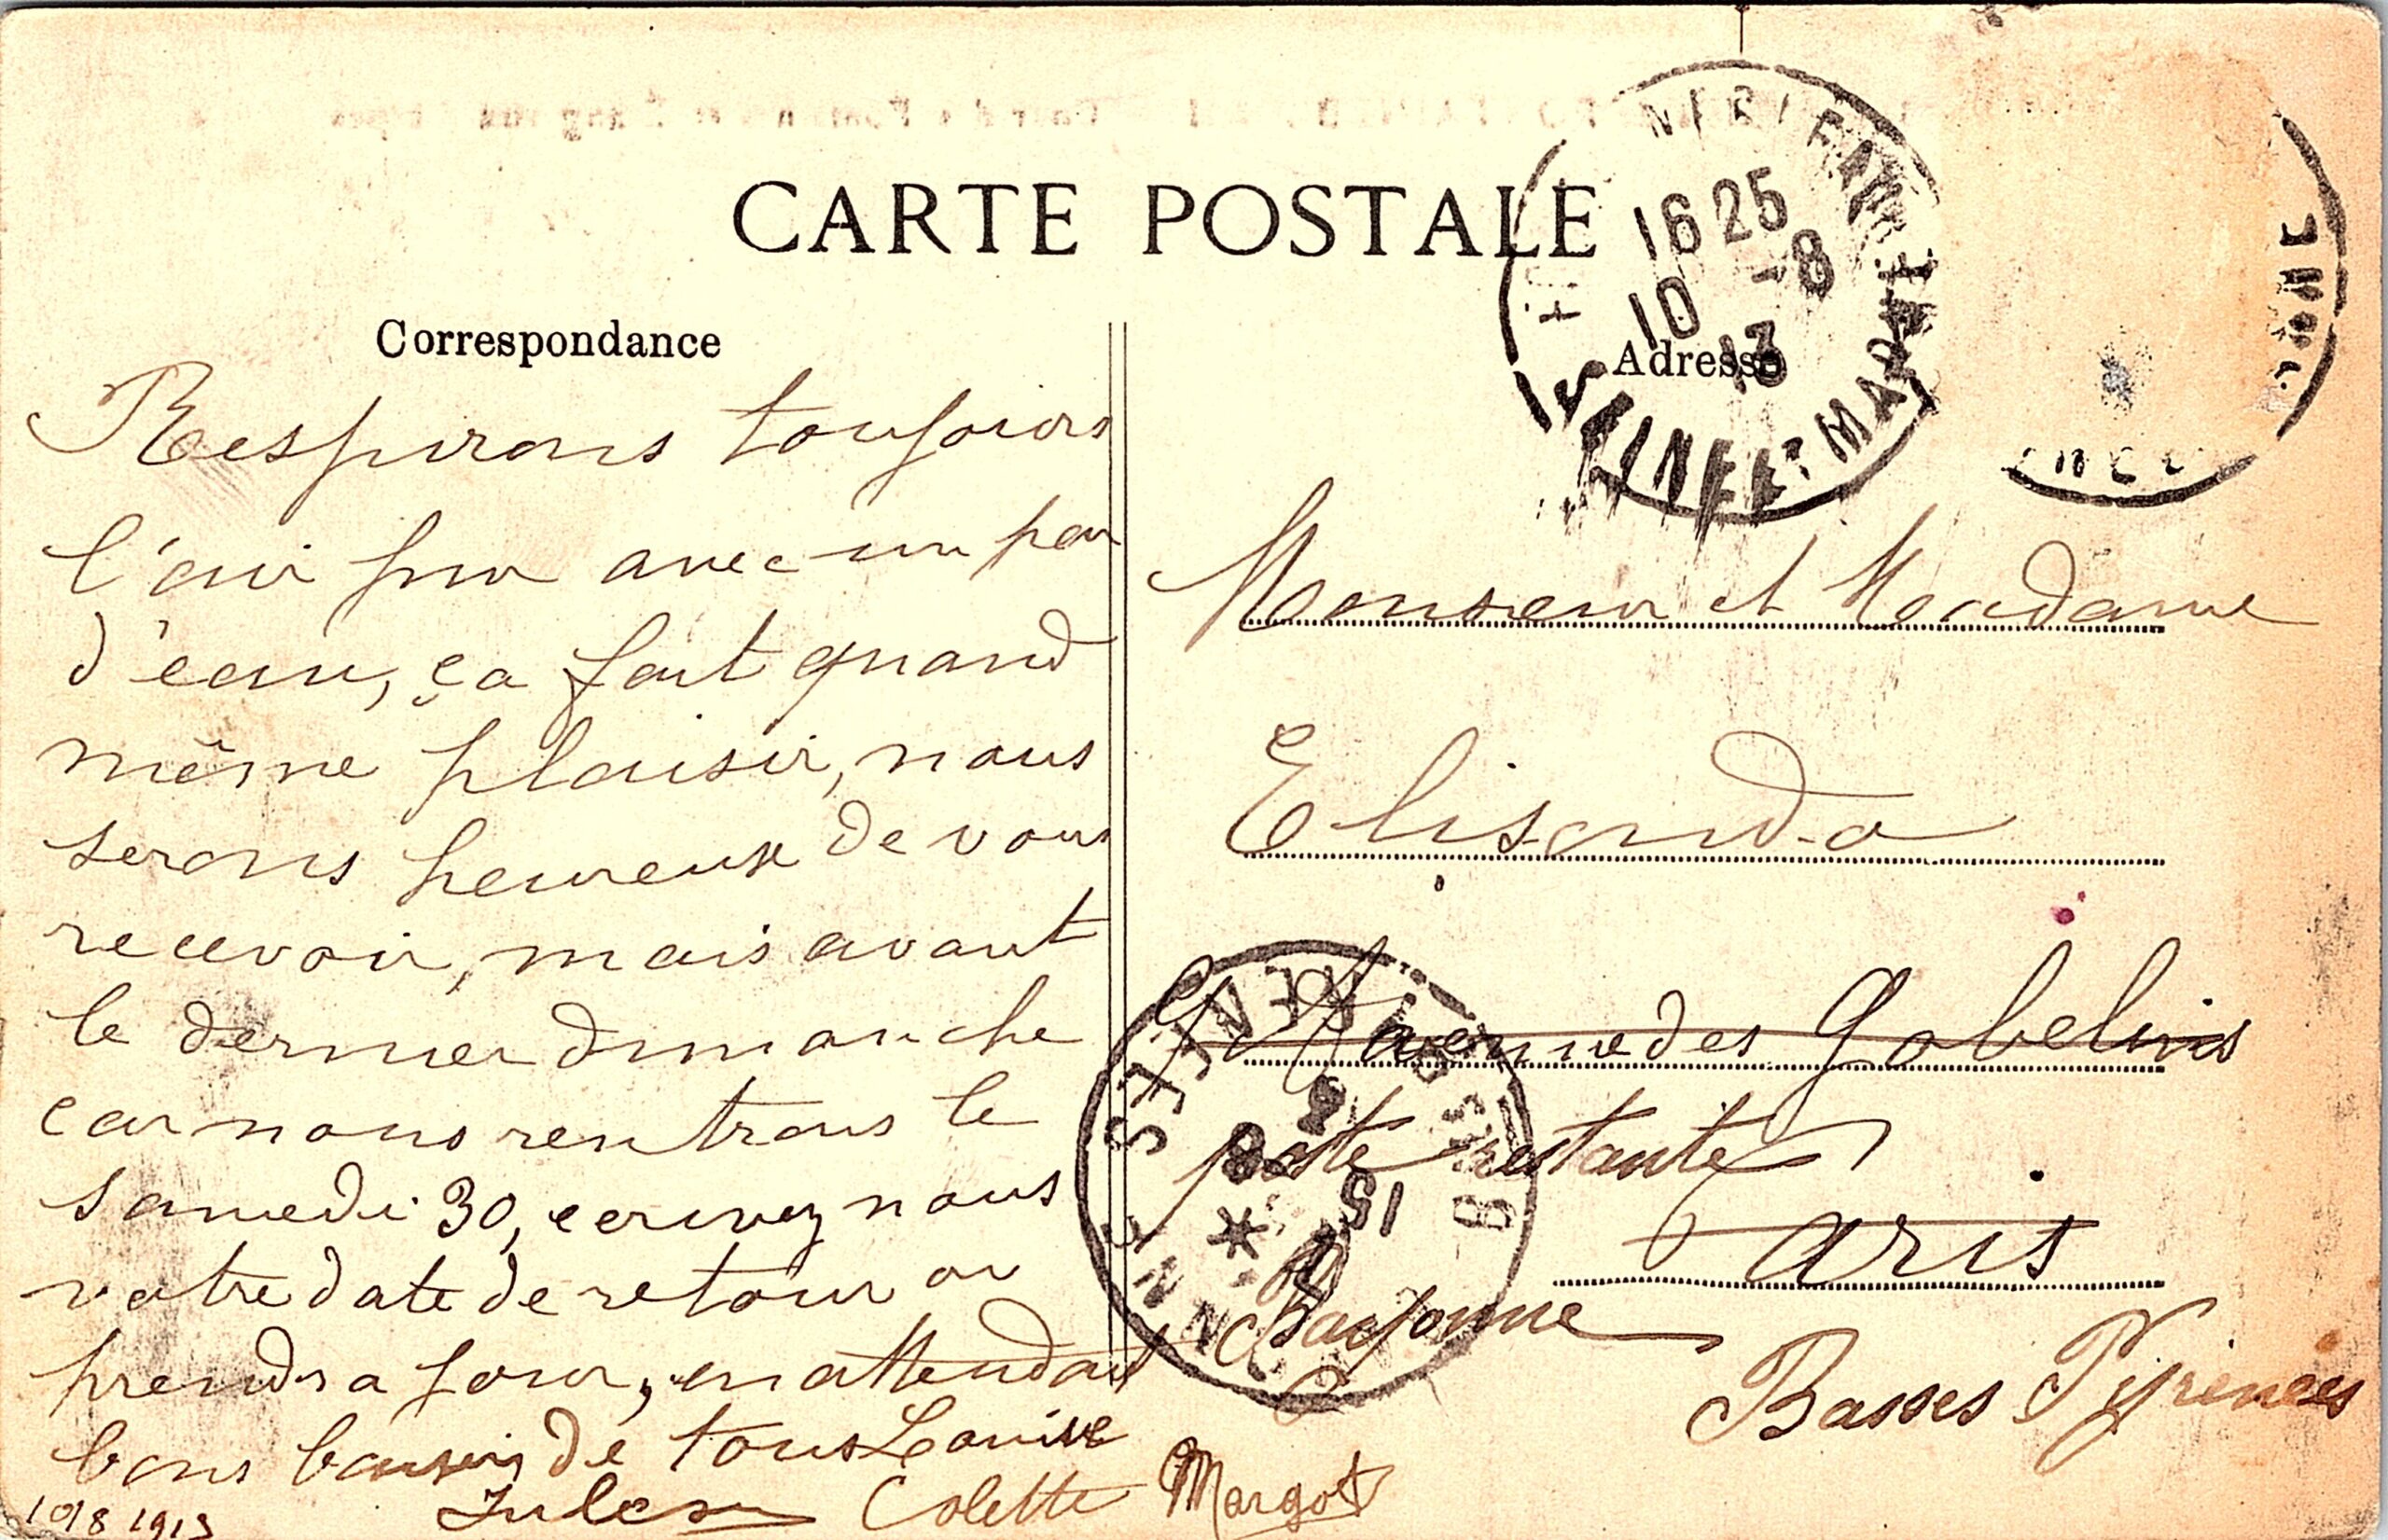 CARTE POSTALE
Correspondance
Respirons toujours
l'air pur avec un peu
d'eau, ça fait quand
même plaisir, nous
serons heureux de vous
recevoir, mais avant
le dernier dimanche
car nous rentrons le
samedi 30, ecrivez nous
votre date de retour on
prendra jour, en attendant
bons baisers de tous Louise
Jules Colette Margot
10/8 1913
Adresse
16 25
10 -8
13
SEINE-ET-MARNE
Monsieur et Madame
Elisando
Avenue des Gobelins
poste restante
Paris
Bayonne
Basses Pyrénées
15